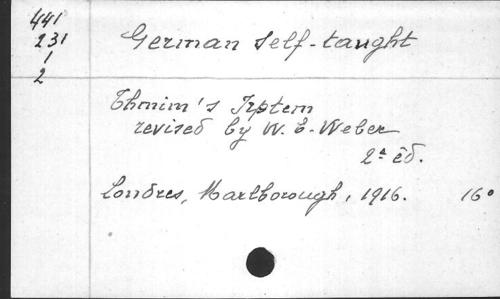 441
231
1
2
German self-taught
Thmim's System
revised by W. E. Weber
2ª éd.
Londres, Marlborough, 1916. 16º